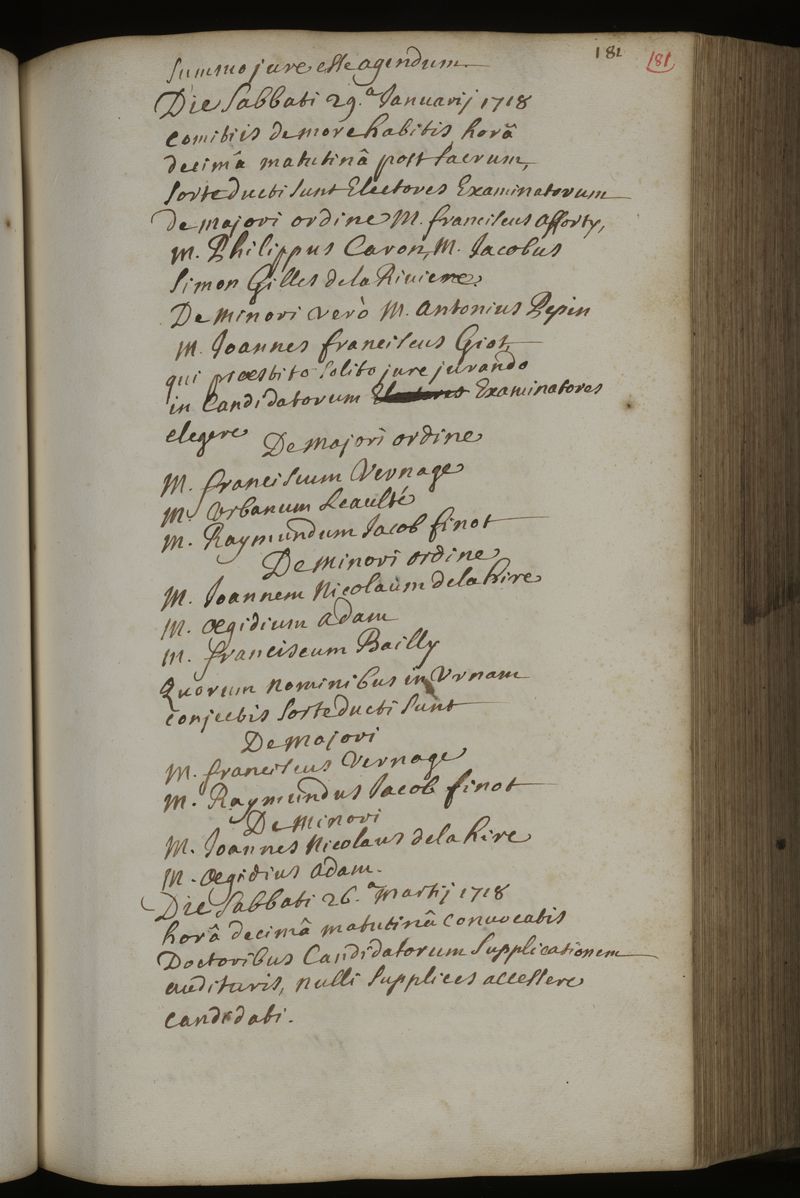 181 181
summo jure esse agendum.
Die Sabbati 29.ª Januarij 1718
comitiis de more habitis horâ
decimâ matutinâ post sacrum,
sorte ducti sunt Electores Examinatorum
de majori ordine M. franciscus afforty,
M. Philippus Caron, M. Jacobus
Simon Gilles de la Riviere.
De minori verò M. Antonius Pepin
M. Joannes franciscus Giot,
qui præstito solito jure jurando
in Candidatorum Electores Examinatores
elegere
De majori ordine
M. franciscum Vernage
M. Urbanum Leaulté
M. Raymundum Jacob finot
De minori ordine
M. Joannem Nicolaum de la hire
M. Œgidium adam
M. franciscum Bailly
Quorum nominibus in Urnam
conjectis sorte ducti sunt
De majori
M. franciscus Vernage
M. Raymundus Jacob finot
De minori
M. Joannes Nicolaus de la hire
M. Œgidius adam.
Die Sabbati 26.ª martij 1718
horâ decimâ matutinâ convocatis
Doctoribus Candidatorum Supplicationem
audituris, nulli supplices accessere
candidati.